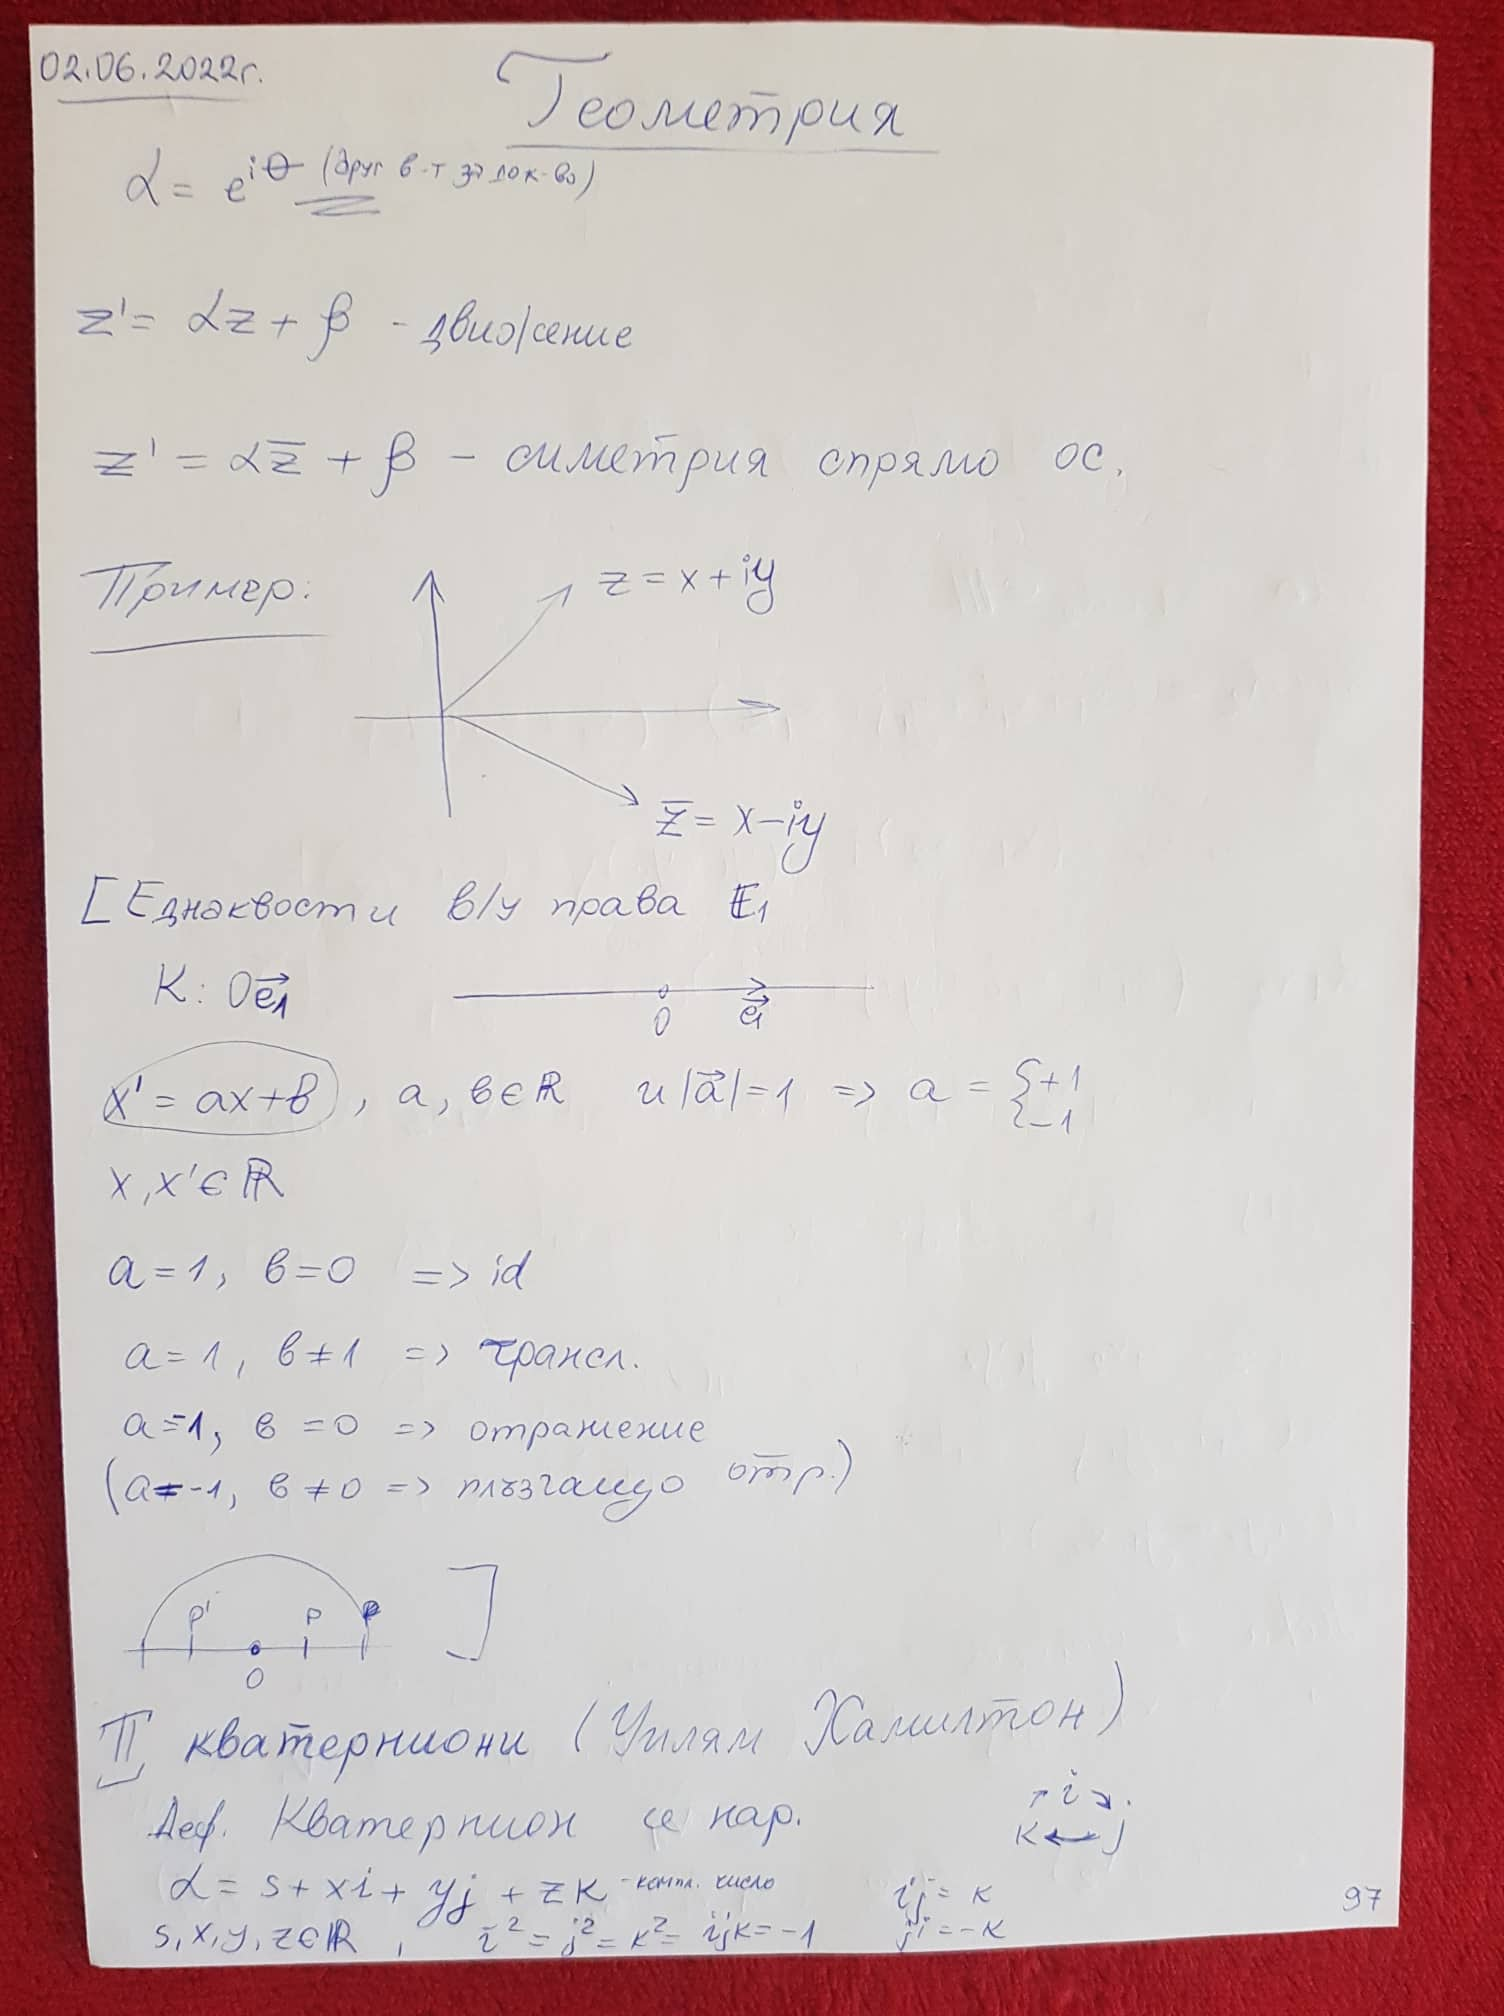 02.06.2022г.
Геометрия
α = e^{iθ} (друг в-т за док-во)
z' = αz + β - движение
z' = αz̅ + β – симетрия спрямо ос.
Пример:
z = x + iy
z̅ = x – iy
[Еднаквости в/у права E₁
K: Oe⃗₁
O e⃗₁
x' = ax + в, a, в ∈ ℝ и |a⃗| = 1 => a = {+1
{-1
x, x' ∈ ℝ
a = 1, в = 0 => id
a = 1, в ≠ 1 => трансл.
a = -1, в = 0 => отражение
(a = -1, в ≠ 0 => плъзгащо отр.)
P' P P ]
O
II кватерниони (Уилям Хамилтон)
Деф. Кватернион се нар. i
k ← j
α = s + xi + yj + zk - компл. число ij = k
s, x, y, z ∈ ℝ, i² = j² = k² = ijk = -1 ji = -k
97